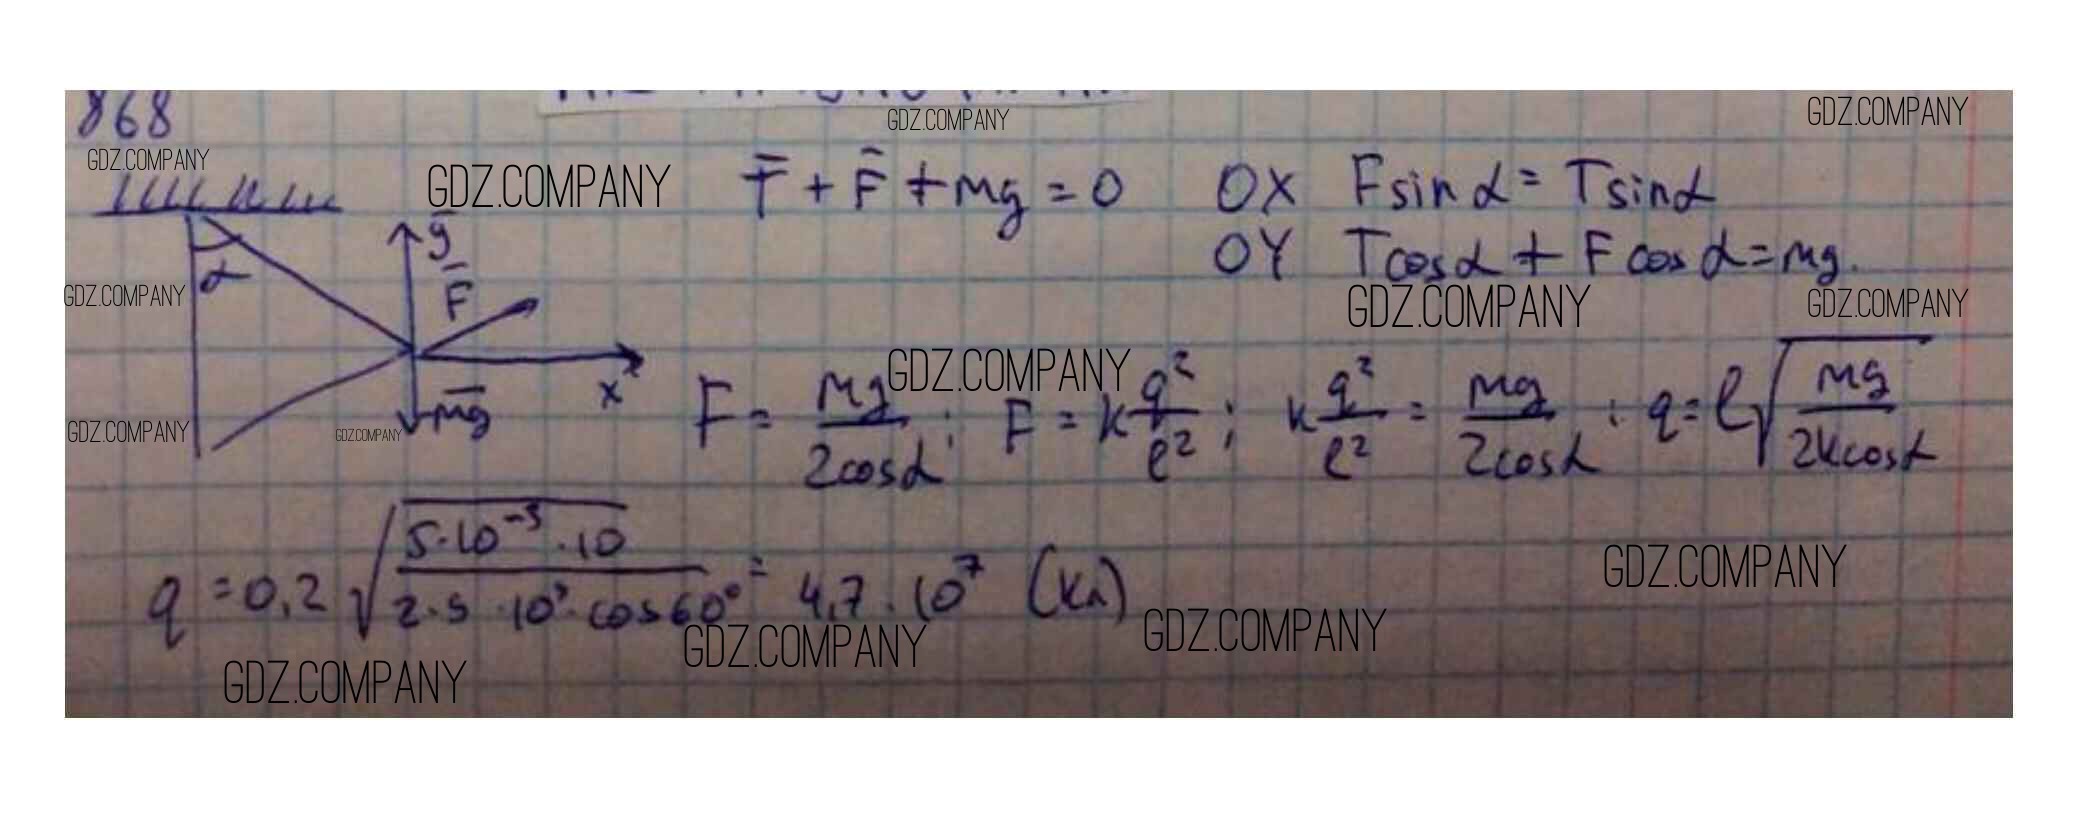 868
GDZ.COMPANY
GDZ.COMPANY
GDZ.COMPANY
GDZ.COMPANY
T̄ + F̄ + mg = 0    OX    F sin α = T sin α
OY    T cos α + F cos α = mg.
α
ȳ
F̄
x
m̄g
GDZ.COMPANY
GDZ.COMPANY
GDZ.COMPANY
GDZ.COMPANY
GDZ.COMPANY
GDZ.COMPANY
F = mg/(2cosα); F = k q²/ℓ²; k q²/ℓ² = mg/(2cosα); q = ℓ√(mg/(2kcosα))
q = 0,2 √(5·10⁻³·10 / (2·5·10⁹·cos60°)) = 4,7·10⁷ (Кл)
GDZ.COMPANY
GDZ.COMPANY
GDZ.COMPANY
GDZ.COMPANY